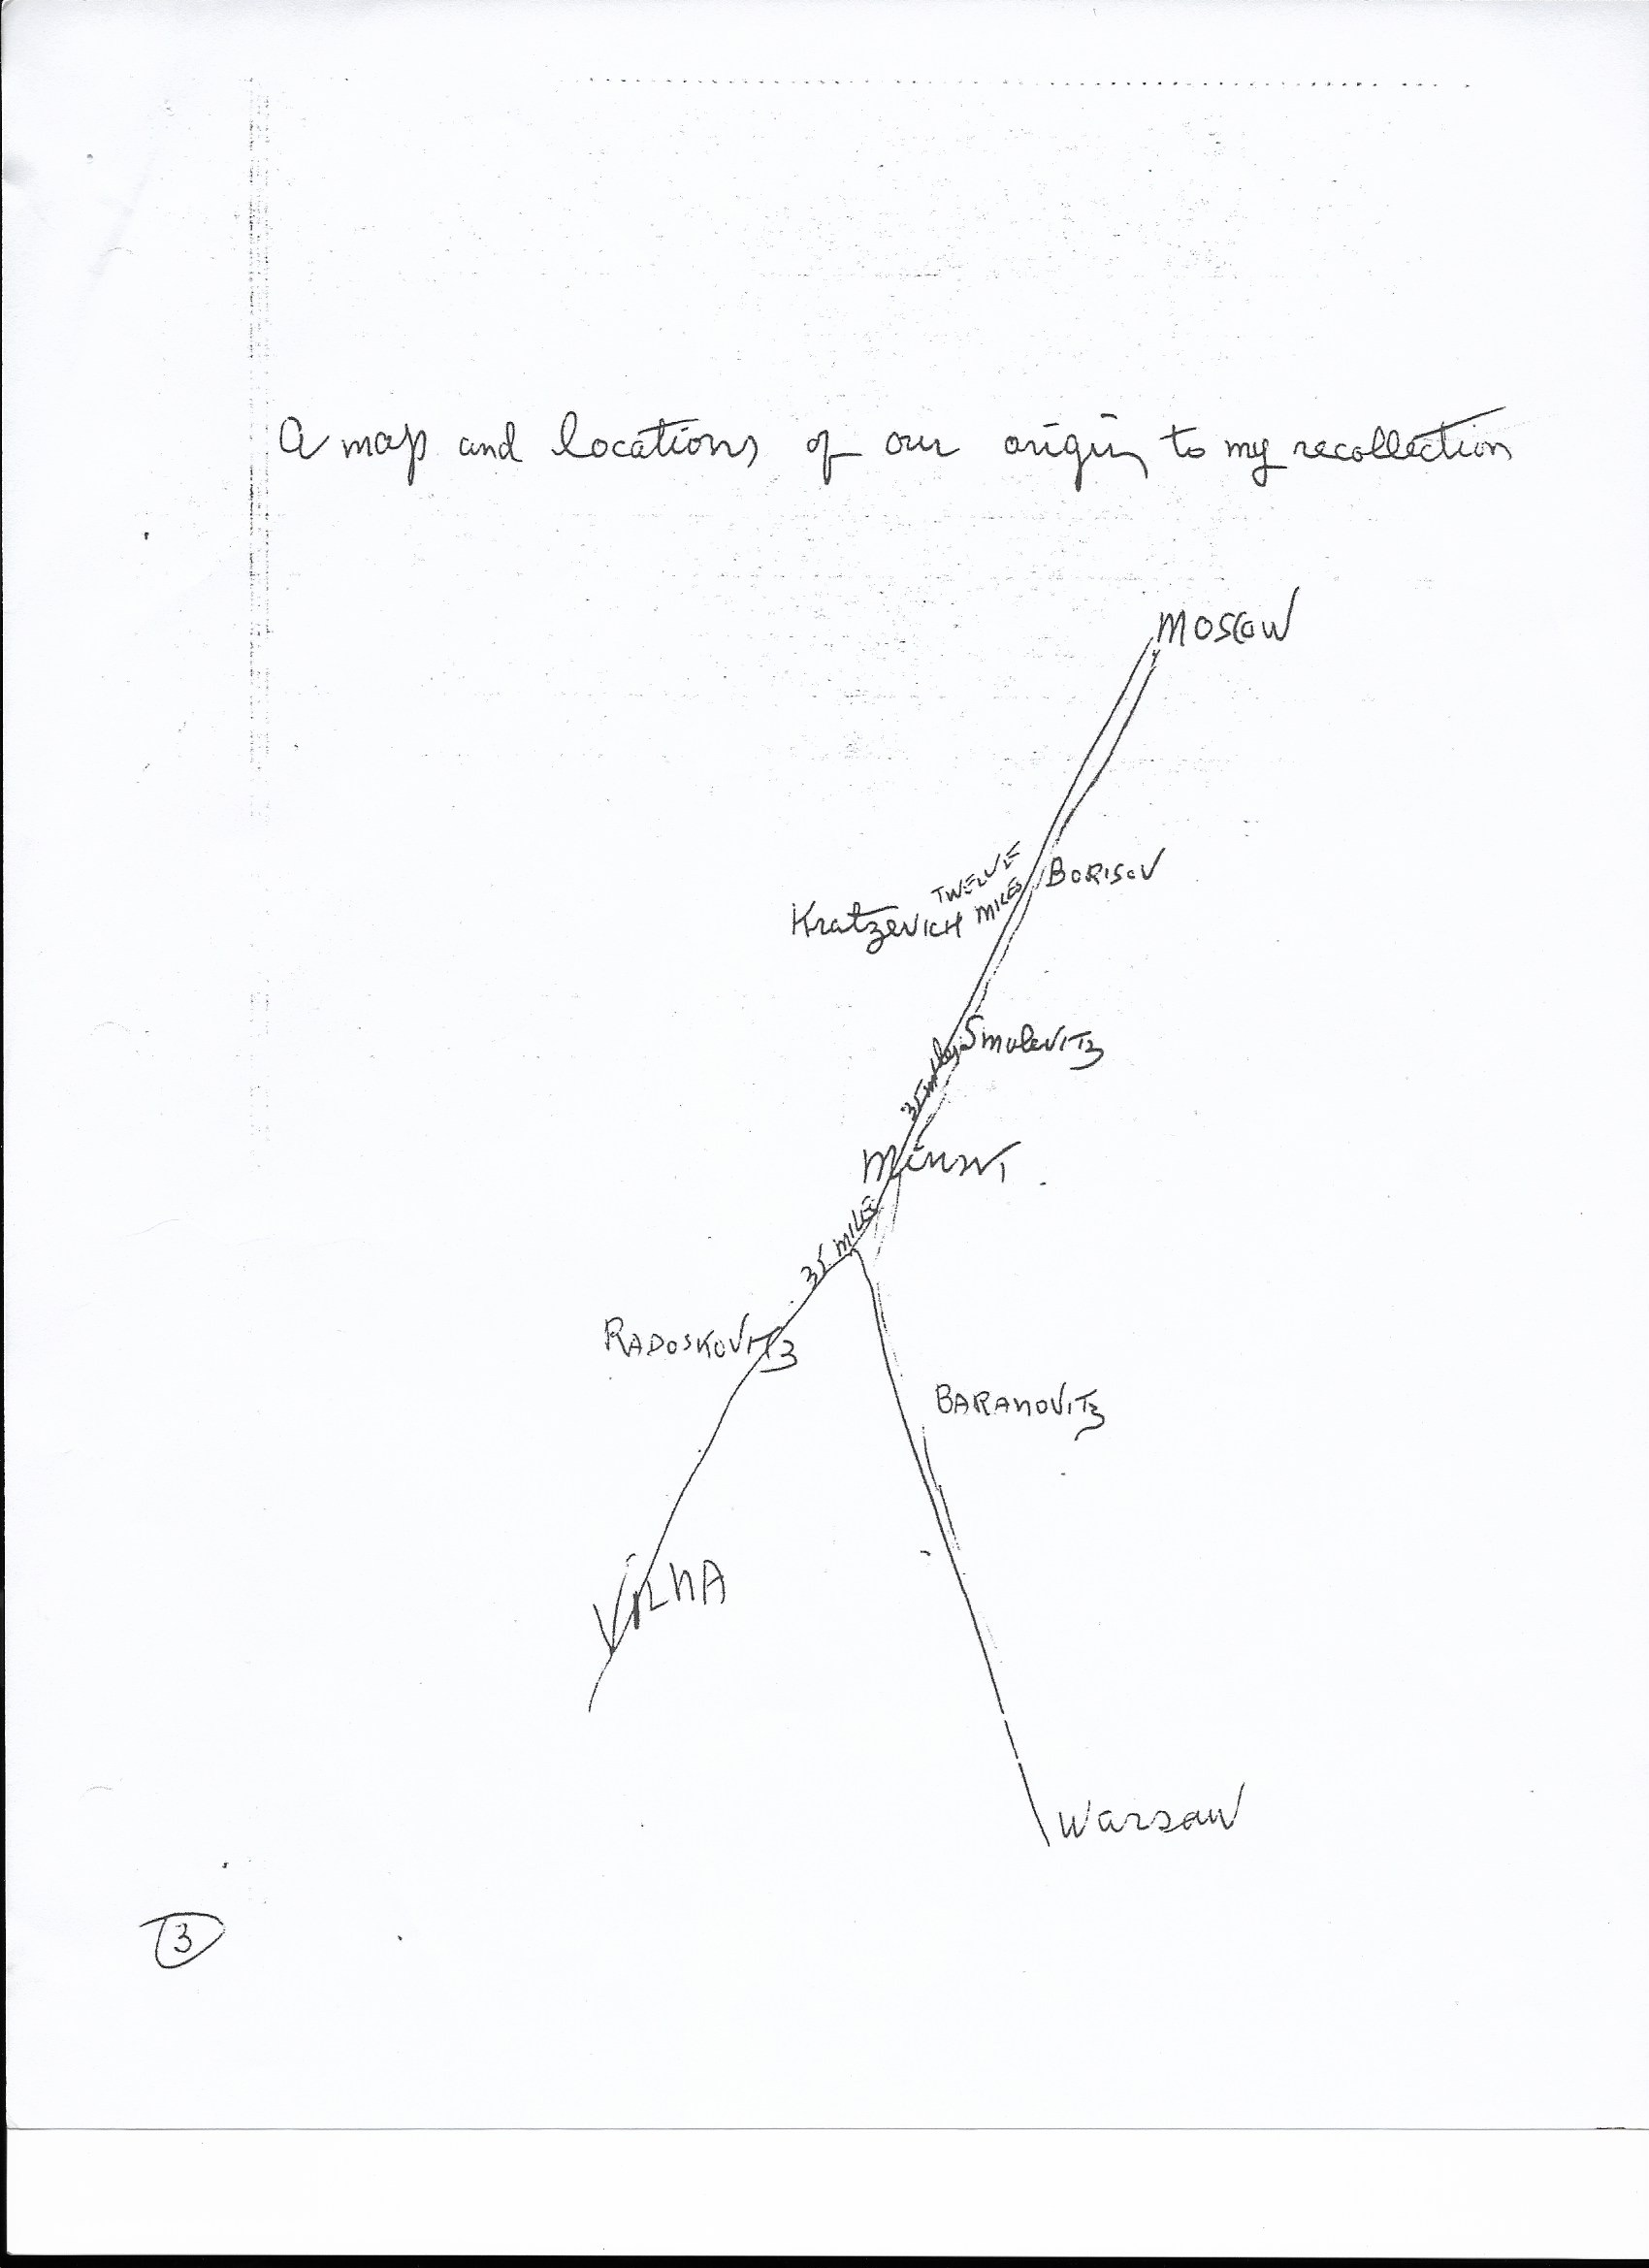 A map and locations of our origin to my recollection
MOSCOW
TWELVE
MILES
BORISOV
KratzEVICH
Smolevitz
35 miles
MINSK
35 MILES
RADOSKOVITZ
BARANOVITZ
VILNA
Warsaw
3